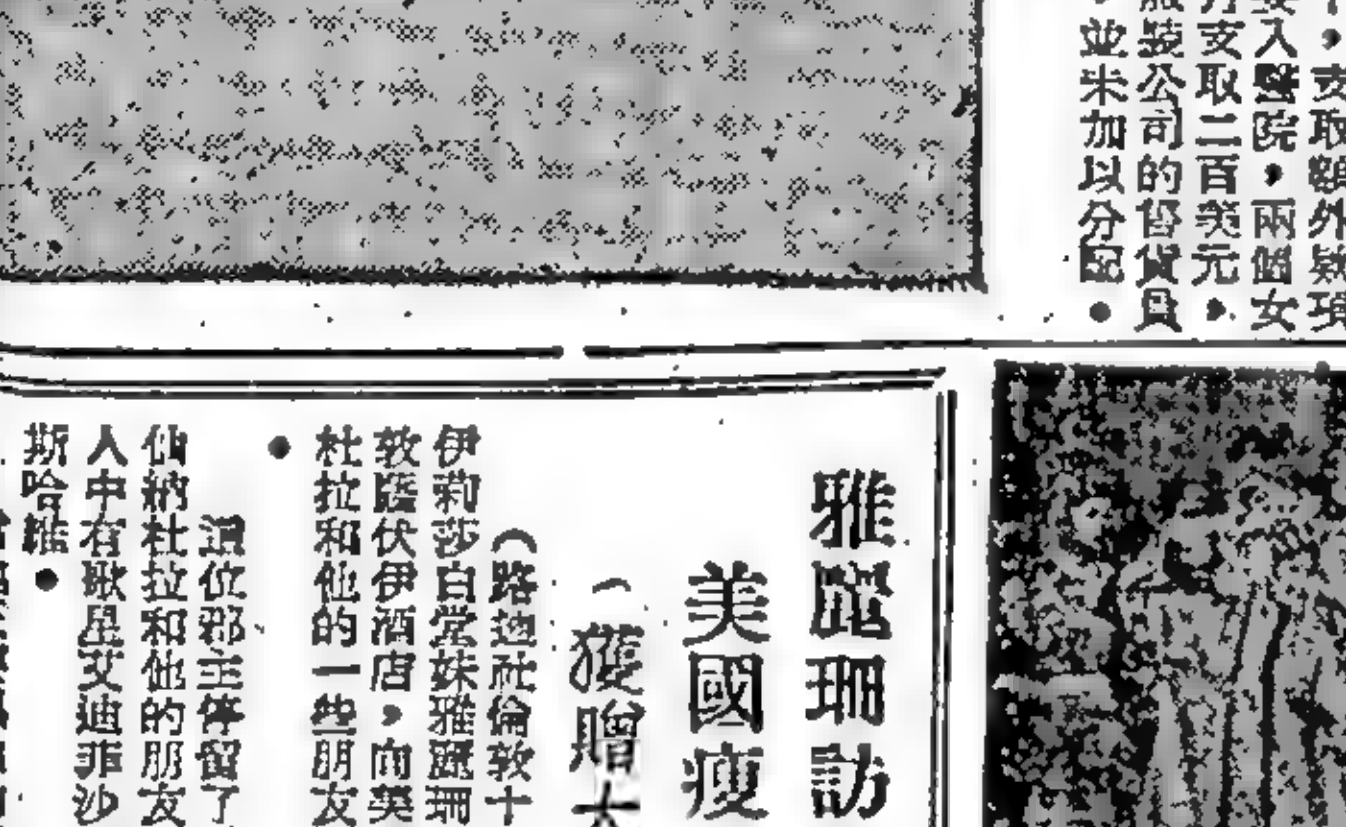 ，支取額外
入醫院，兩個女
支取二百美元，
服裝公司的售貨員
並未加以分配。
雅麗珊訪
美國瘦
（獲贈大
（路透社倫敦十
伊莉莎白堂妹雅麗珊
敦薩伏伊酒店，向美
杜拉和他的一些朋友
。
這位郡主停留了
仙納杜拉和他的朋友
人中有歌星艾迪菲沙
斯哈維。